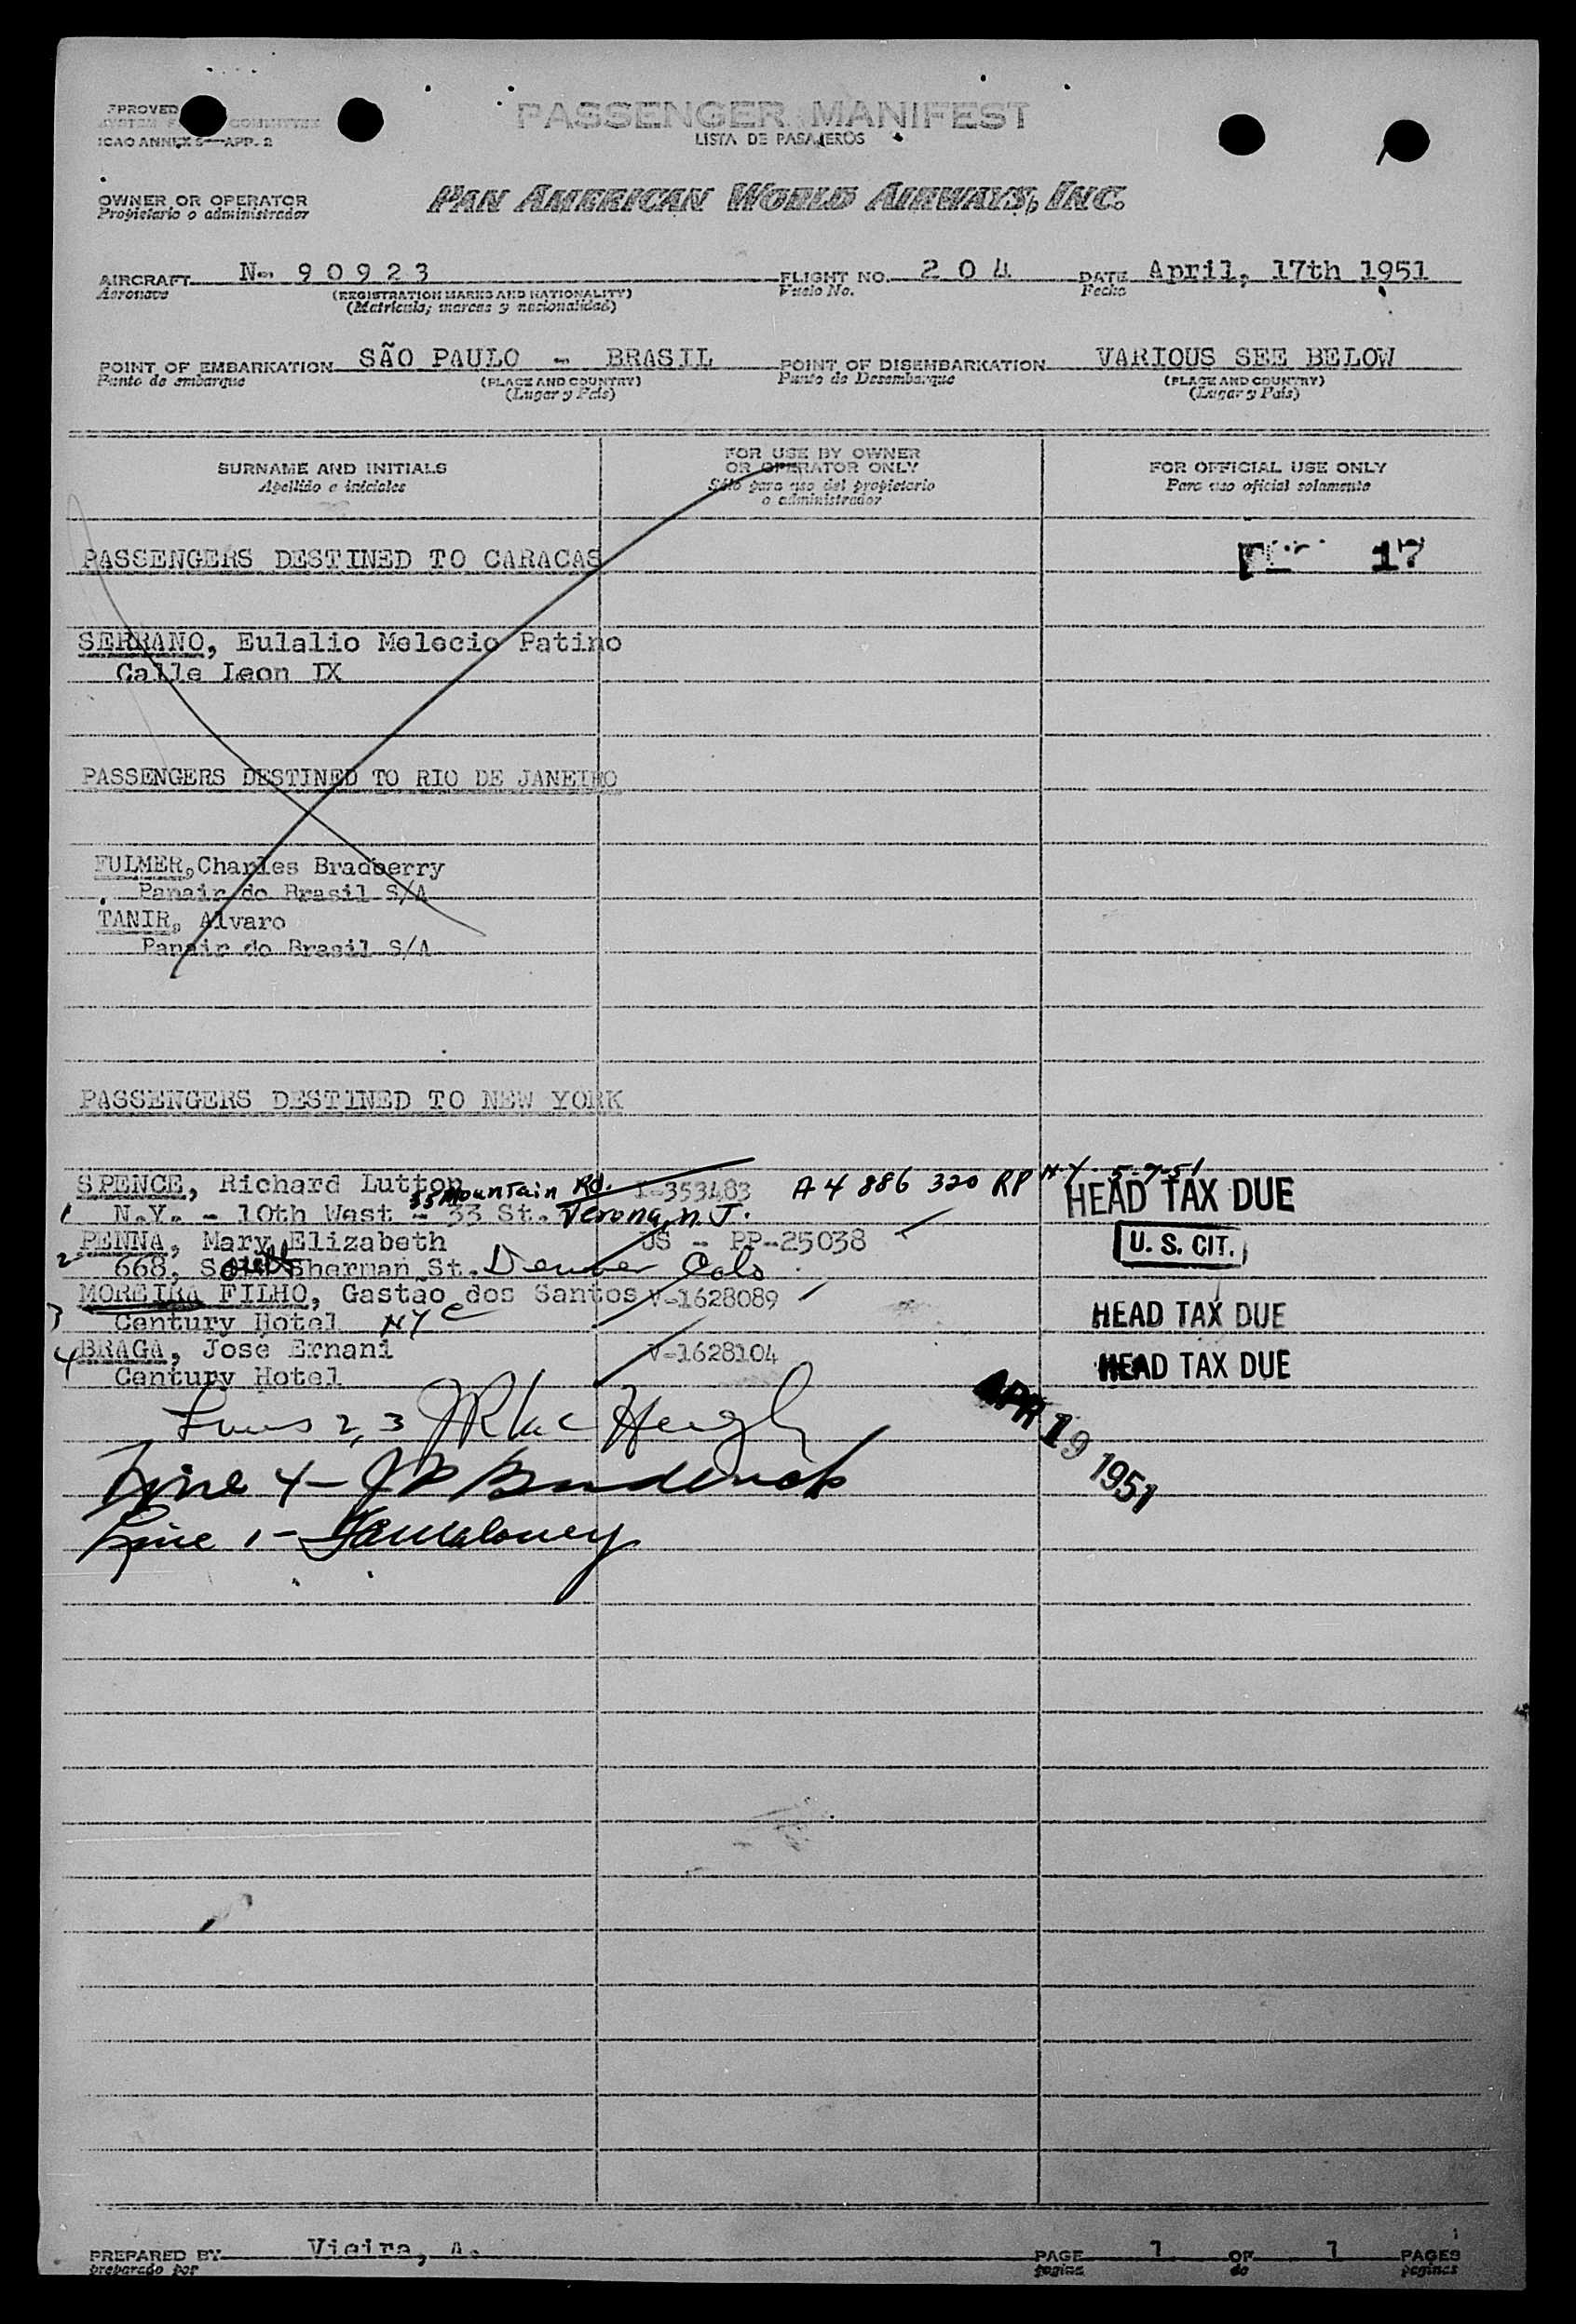 PASSENGER MANIFEST
LISTA DE PASAJEROS
APPROVED
SYSTEM COMMITTEE
ICAO ANNEX 9—APP. 2
OWNER OR OPERATOR
Propietario o administrador
PAN AMERICAN WORLD AIRWAYS, INC.
AIRCRAFT N- 90923 FLIGHT NO. 204 DATE April, 17th 1951
Aeronave (REGISTRATION MARKS AND NATIONALITY) Vuelo No. Fecha
(Matricula; marcas y nacionalidad)
POINT OF EMBARKATION SÃO PAULO - BRASIL POINT OF DISEMBARKATION VARIOUS SEE BELOW
Punto de embarque (PLACE AND COUNTRY) Punto de Desembarque (PLACE AND COUNTRY)
(Lugar y País) (Lugar y País)
SURNAME AND INITIALS FOR USE BY OWNER OR OPERATOR ONLY FOR OFFICIAL USE ONLY
Apellido e iniciales Sólo para uso del propietario o administrador Para uso oficial solamente
PASSENGERS DESTINED TO CARACAS 17
SERRANO, Eulalio Melecio Patino
Calle Leon IX
PASSENGERS DESTINED TO RIO DE JANEIRO
FULMER, Charles Bradberry
Panair do Brasil S/A
TANIR, Alvaro
Panair do Brasil S/A
PASSENGERS DESTINED TO NEW YORK
SPENCE, Richard Lutton 55 Mountain Rd. I-353483 A4 886 320 RP NY. 5-7-51 HEAD TAX DUE
1 N.Y. - 10th West - 33 St. Verona, N.J.
PENNA, Mary Elizabeth US - PP-25038 U. S. CIT.
2 668, South Sherman St. Denver Colo
MOREIRA FILHO, Gastão dos Santos V-1628089 HEAD TAX DUE
3 Century Hotel NYC
4 BRAGA, Jose Ernani V-1628104 HEAD TAX DUE
Century Hotel
Lines 2, 3
APR 19 1951
Line 4-
Line 1-
PREPARED BY Vieira, A. PAGE 1 OF 1 PAGES
preparado por pagina de paginas